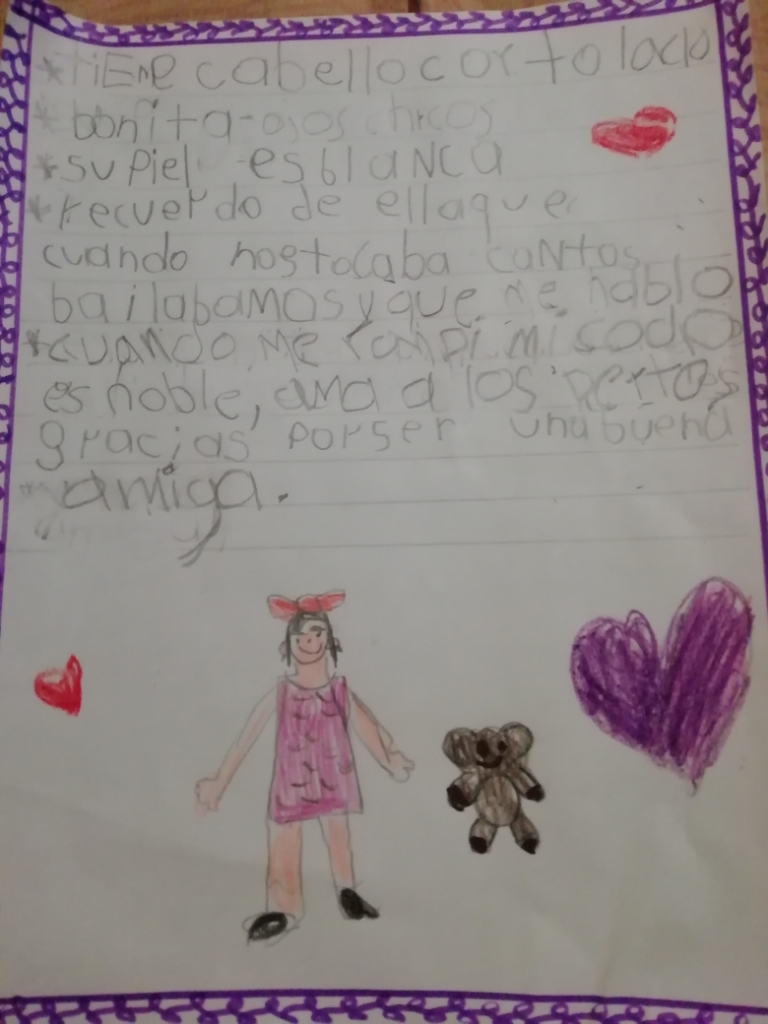 *TiENe cabello corto lacio
*bonita-ojos chicos
*su Piel es blANCa
*recuerdo de ella que
cuando nos tocaba caNtos
bailabamos y que me hablo
*cuANdo Me rompi mi codo
es noble, ama a los perros
gracias por ser una buena
amiga.